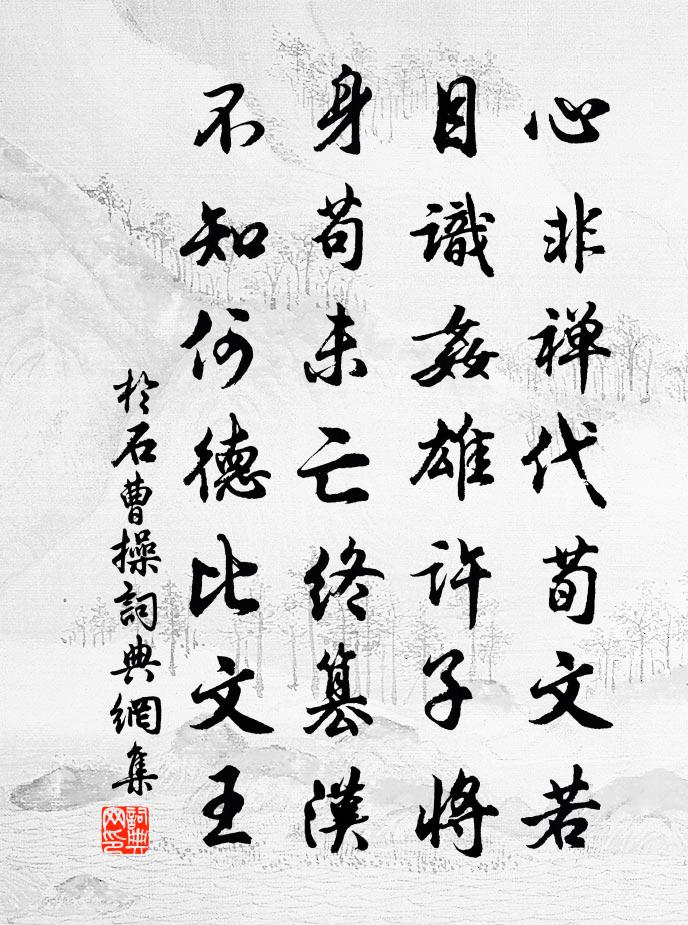 心非禅代荀文若
目識姦雄許子將
身苟未亡終篡漢
不知何德比文王
於石曹操詞典網集
詞典网印